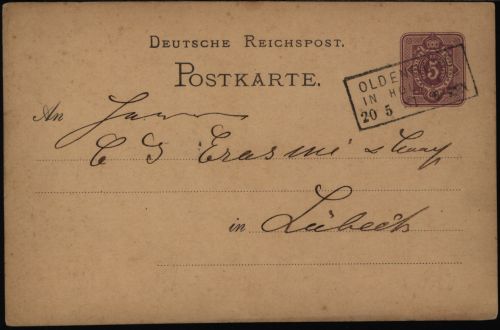 DEUTSCHE REICHSPOST.
POSTKARTE.
5
OLDEN
IN HO
20 5
An Herrn
C J Erasmi
in Lübeck